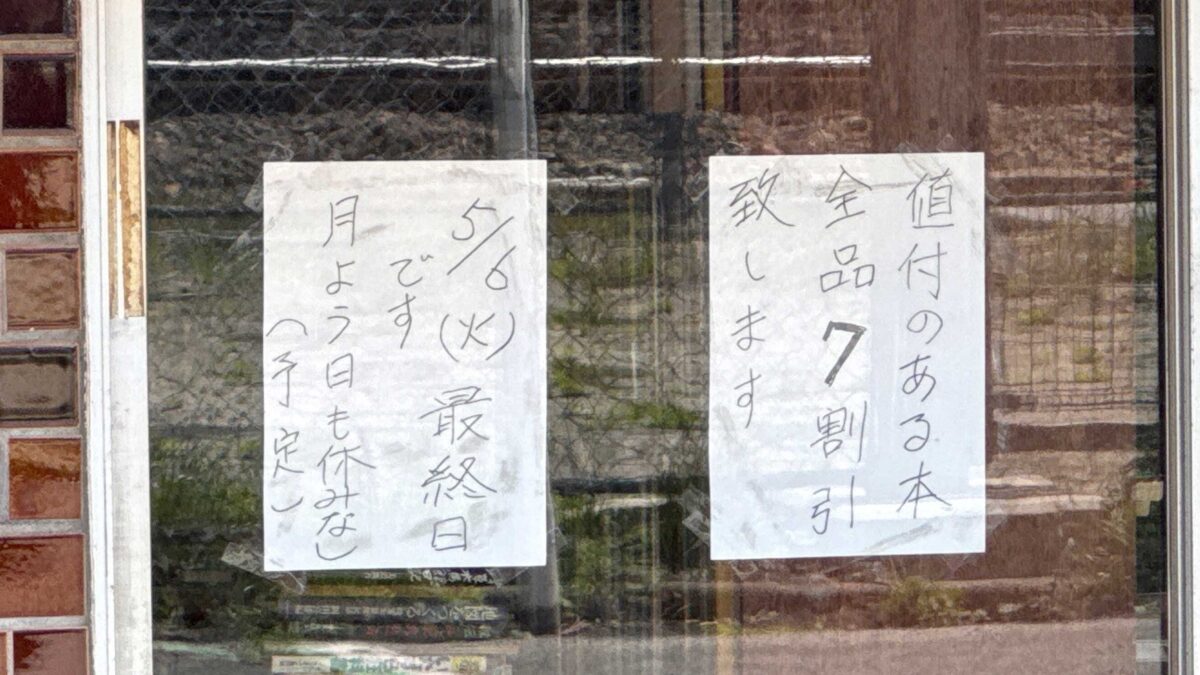 値付のある本
全品7割引
致します
5/6(火)最終日
です
月よう日も休みなし
(予定)